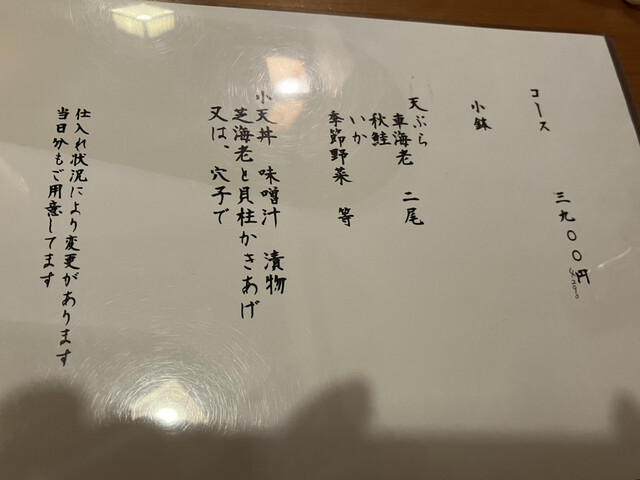 コース 三九〇〇円
小鉢
天ぷら
車海老 二尾
秋鮭
いか
季節野菜 等
小天丼 味噌汁 漬物
芝海老と貝柱かきあげ
又は、穴子で
仕入れ状況により変更があります
当日分もご用意してます